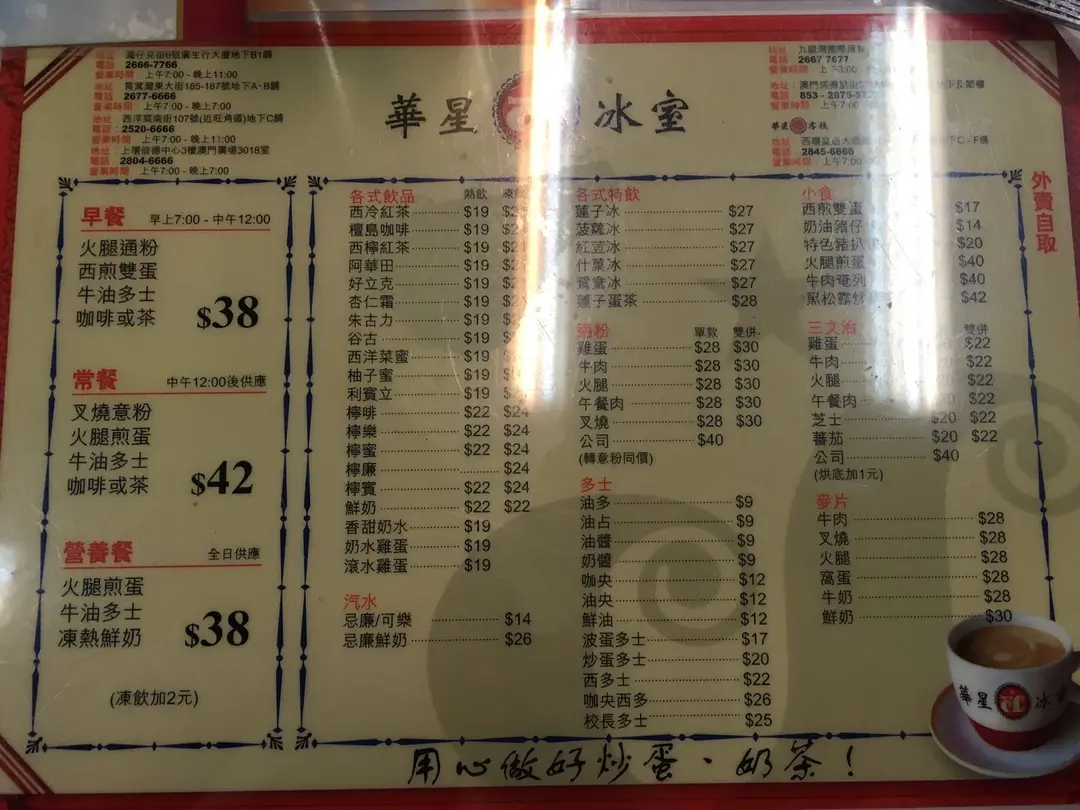 地址 : 灣仔克街6號廣生行大廈地下B1舖
電話 : 2666-7766
營業時間 : 上午7:00 - 晚上11:00
地址 : 筲箕灣東大街185-187號地下A、B舖
電話 : 2677-6666
營業時間 : 上午7:00 - 晚上7:00
地址 : 西洋菜南街107號(近旺角道)地下C舖
電話 : 2520-6666
營業時間 : 上午7:00 - 晚上11:00
地址 : 上環信德中心3樓澳門廣場3018室
電話 : 2804-6666
營業時間 : 上午7:00 - 晚上7:00
華星 冰室
地址 : 九龍灣國際展
電話 : 2667 7677
營業時間 : 上
地址 : 澳門
電話 : 853 - 2875-
營業時間 : 上午7:00
華星 客棧
地址 : 西環
電話 : 2845-6666
營業時間 : 上午7:00
外賣自取
早餐 早上7:00 - 中午12:00
火腿通粉
西煎雙蛋
牛油多士
咖啡或茶 $38
常餐 中午12:00後供應
叉燒意粉
火腿煎蛋
牛油多士
咖啡或茶 $42
營養餐 全日供應
火腿煎蛋
牛油多士
凍熱鮮奶 $38
(凍飲加2元)
各式飲品 熱飲 凍飲
西冷紅茶 $19
檀島咖啡 $19
西檸紅茶 $19
阿華田 $19
好立克 $19
杏仁霜 $19
朱古力 $19
谷古 $19
西洋菜蜜 $19
柚子蜜 $19
利賓立 $19
檸啡 $22 $24
檸樂 $22 $24
檸蜜 $22 $24
檸廉 $24
檸賓 $22 $24
鮮奶 $22 $22
香甜奶水 $19
奶水雞蛋 $19
滾水雞蛋 $19
汽水
忌廉/可樂 $14
忌廉鮮奶 $26
各式特飲
蓮子冰 $27
菠蘿冰 $27
紅荳冰 $27
什菓冰 $27
鴛鴦冰 $27
蓮子蛋茶 $28
粉 單款 雙併
雞蛋 $28 $30
牛肉 $28 $30
火腿 $28 $30
午餐肉 $28 $30
叉燒 $28 $30
公司 $40
(轉意粉同價)
多士
油多 $9
油占 $9
油醬 $9
奶醬 $9
咖央 $12
油央 $12
鮮油 $12
波蛋多士 $17
炒蛋多士 $20
西多士 $22
咖央西多 $26
校長多士 $25
小食
西煎雙蛋 $17
奶油豬仔 $14
特色豬扒 $20
火腿煎蛋 $40
牛肉奄列 $40
黑松露炒 $42
三文治 雙併
雞蛋 $22
牛肉 $22
火腿 $22
午餐肉 $22
芝士 $20 $22
蕃茄 $20 $22
公司 $40
(烘底加1元)
麥片
牛肉 $28
叉燒 $28
火腿 $28
窩蛋 $28
牛奶 $28
鮮奶 $30
華星 冰室
用心做好炒蛋、奶茶!